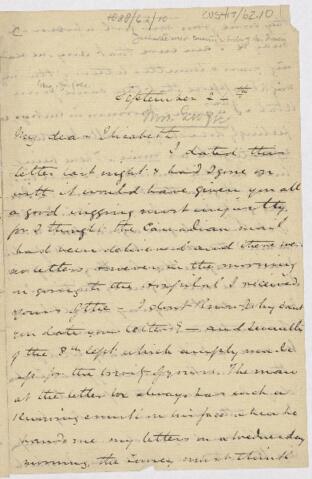 1088/62/10
CUSH17/62.10
September 2
My dear Elizabeth
I dated this
letter last night & had I gone on
with it it would have given you all
a good wigging most unjustly,
for I thought the Canadian mail
had been delivered and there were
no letters, however, in the morning
in going to the Hospital I received
yours of the – I don't know. Why don't
you date your letters? – and
of the 8th Sept. which amply made
up for the of yours. The man
at the letter box always has such a
knowing smile on his face when he
hands me my letters on a Wednesday
morning, he must think